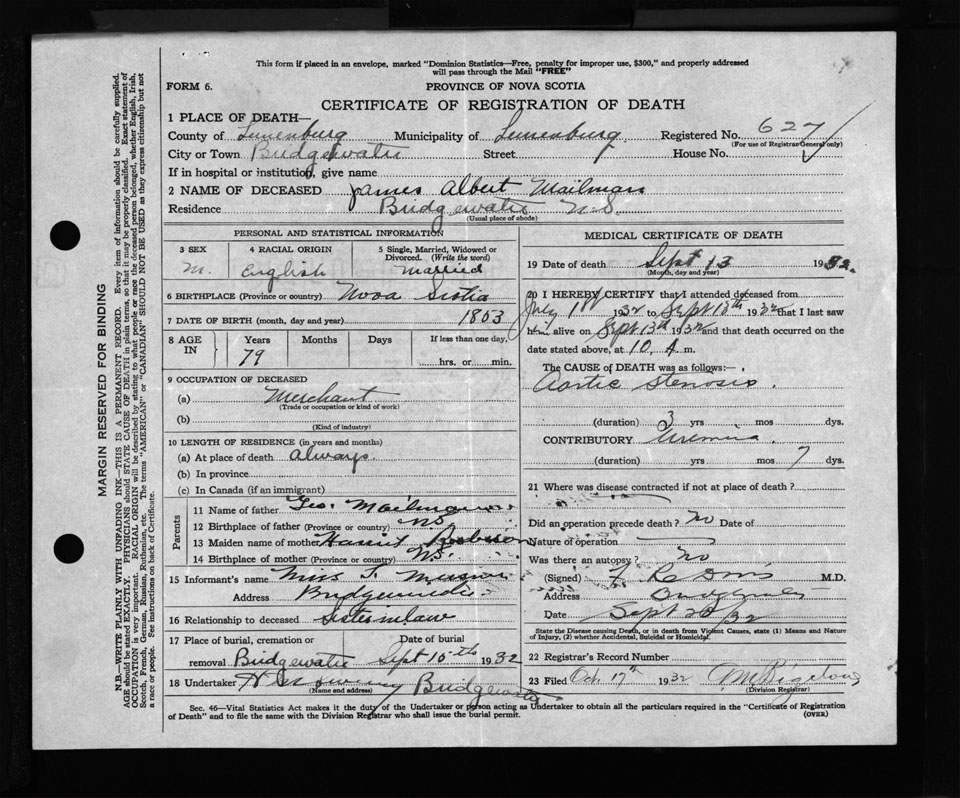 This form if placed in an envelope, marked "Dominion Statistics—Free, penalty for improper use, $300," and properly addressed
will pass through the Mail "FREE"
FORM 6.
PROVINCE OF NOVA SCOTIA
CERTIFICATE OF REGISTRATION OF DEATH
1 PLACE OF DEATH—
County of Lunenburg Municipality of Lunenburg Registered No. 627
(For use of Registrar General only)
City or Town Bridgewater Street House No.
If in hospital or institution, give name
2 NAME OF DECEASED James Albert Mailman
Residence Bridgewater N.S.
(Usual place of abode)
PERSONAL AND STATISTICAL INFORMATION
3 SEX 4 RACIAL ORIGIN 5 Single, Married, Widowed or
Divorced. (Write the word)
M. English married
6 BIRTHPLACE (Province or country) Nova Scotia
7 DATE OF BIRTH (month, day and year) 1853
8 AGE IN Years Months Days If less than one day,
79 hrs. or min.
9 OCCUPATION OF DECEASED
(a) Merchant
(Trade or occupation or kind of work)
(b)
(Kind of industry)
10 LENGTH OF RESIDENCE (in years and months)
(a) At place of death always
(b) In province
(c) In Canada (if an immigrant)
Parents
11 Name of father Geo. Mailman
12 Birthplace of father (Province or country) N.S.
13 Maiden name of mother Harriet
14 Birthplace of mother (Province or country) N.S.
15 Informant's name
Address Bridgewater
16 Relationship to deceased Sister in law
17 Place of burial, cremation or Date of burial
removal Bridgewater Sept 15th 1932
18 Undertaker Bridgewater
(Name and address)
MEDICAL CERTIFICATE OF DEATH
19 Date of death Sept 13 1932.
(Month, day and year)
20 I HEREBY CERTIFY that I attended deceased from
July 1st 1932 to Sept 13th 1932 that I last saw
him alive on Sept 13th 1932 and that death occurred on
date stated above, at 10 A. m.
The CAUSE of DEATH was as follows:—
Aortic Stenosis.
(duration) 3 yrs mos dys.
CONTRIBUTORY Uremia.
(duration) yrs mos 7 dys.
21 Where was disease contracted if not at place of death?
Did an operation precede death? No Date of
Nature of operation
Was there an autopsy? No
(Signed) M.D.
Address Bridgewater
Date Sept 20/32
State the Disease causing Death, or in death from Violent Causes, state (1) Means and Nature
of Injury, (2) whether Accidental, Suicidal or Homicidal.
22 Registrar's Record Number
23 Filed Oct 17th 1932 Bigelow
(Division Registrar)
Sec. 46—Vital Statistics Act makes it the duty of the Undertaker or person acting as Undertaker to obtain all the particulars required in the "Certificate of Registration
of Death" and to file the same with the Division Registrar who shall issue the burial permit. (OVER)
MARGIN RESERVED FOR BINDING
N.B.—WRITE PLAINLY WITH UNFADING INK—THIS IS A PERMANENT RECORD. Every item of information should be carefully supplied.
AGE should be stated EXACTLY. PHYSICIANS should STATE CAUSE OF DEATH in plain terms, so that it may be properly classified. Exact statement of
OCCUPATION is very important. RACIAL ORIGIN will be described by stating to what people or race the deceased person belonged, whether English, Irish,
Scotch, French, German, Russian, Ruthenian, etc. The terms "AMERICAN" or "CANADIAN" SHOULD NOT BE USED as they express citizenship but not
a race or people. See instructions on back of Certificate.